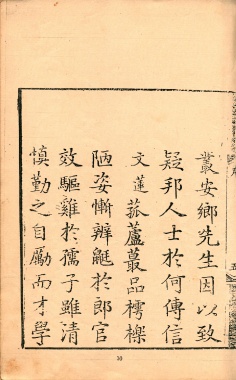 叢安鄉先生因以致
疑邦人士於何傳信
文蓮菰蘆蕞品樗櫟
陋姿慚辨鼮於郎官
效驅雞於孺子雖清
慎勤之自勵而才學